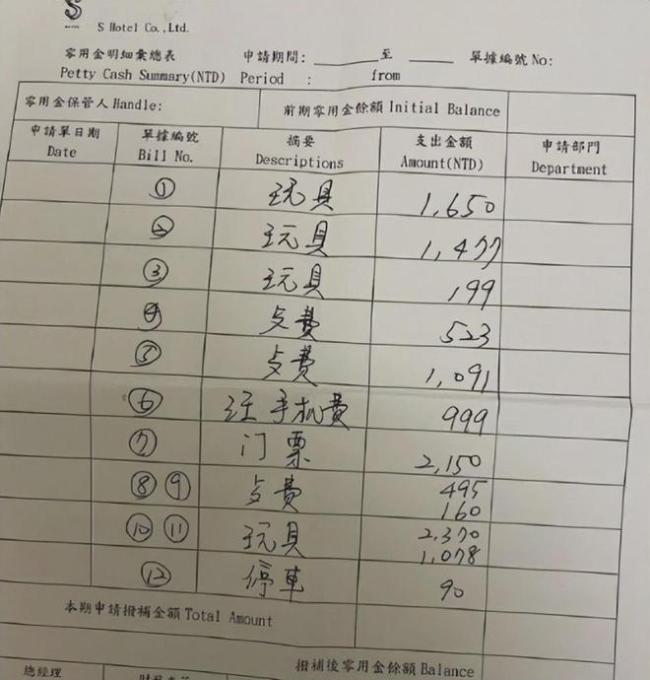 S
S Hotel Co.,Ltd.
零用金明細彙總表 申請期間: 至 單據編號 No:
Petty Cash Summary(NTD) Period : from
零用金保管人 Handle: 前期零用金餘額 Initial Balance
申請單日期 單據編號 摘要 支出金額 申請部門
Date Bill No. Descriptions Amount(NTD) Department
① 玩具 1,650
② 玩具 1,477
③ 玩具 199
④ 费 523
⑤ 费 1,091
⑥ 手机费 999
⑦ 门票 2,150
⑧ ⑨ 费 495
160
⑩ ⑪ 玩具 2,370
1,078
⑫ 停車 90
本期申請撥補金額 Total Amount
撥補後零用金餘額 Balance
總經理